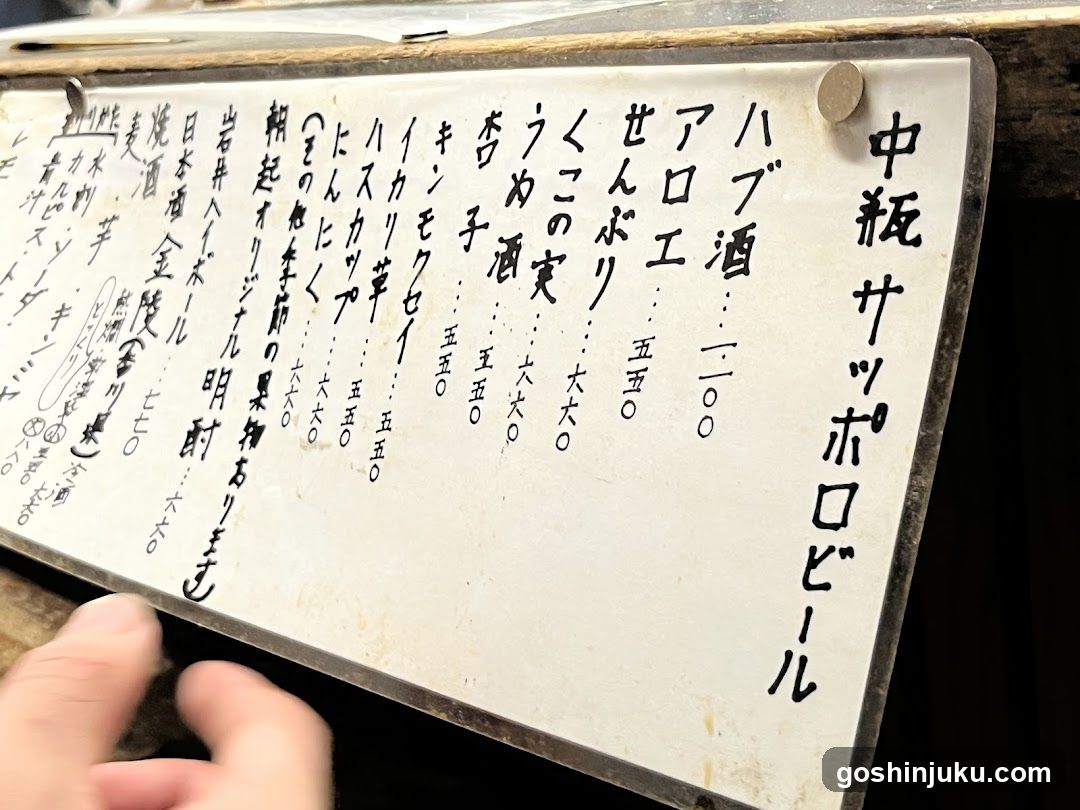 中瓶 サッポロビール
ハブ酒……一一〇〇
アロエ……五五〇
せんぶり……六六〇
くこの実……六六〇
うめ酒……五五〇
杏子……五五〇
キンモクセイ……五五〇
イカリ草……五五〇
ハスカップ……六六〇
にんにく……六六〇
(その他季節の果物あります)
朝起オリジナル 明酎…六六〇
岩井ハイボール…七七〇
日本酒 金陵(香川県) 冷酒 六六〇
熱燗
とっくり
焼酒
麦・芋・キンミヤ
水割
カルピス・ソーダ
青汁
goshinjuku.com